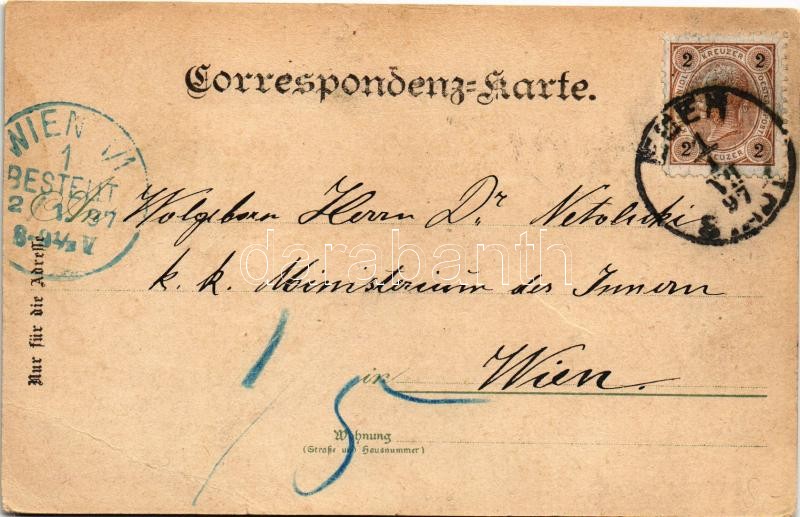 Correspondenz-Karte.
2 KREUZER 2
2 KREUZER 2
WIEN 1/1
1
BESTELLT
2 97
8-9½ V
97
S
Wolgeborn Herrn Dr Netolicki
k. k. Ministerium des Innern
in Wien.
1/5
Wohnung
(Straße und Hausnummer)
Nur für die Adresse
darabanth